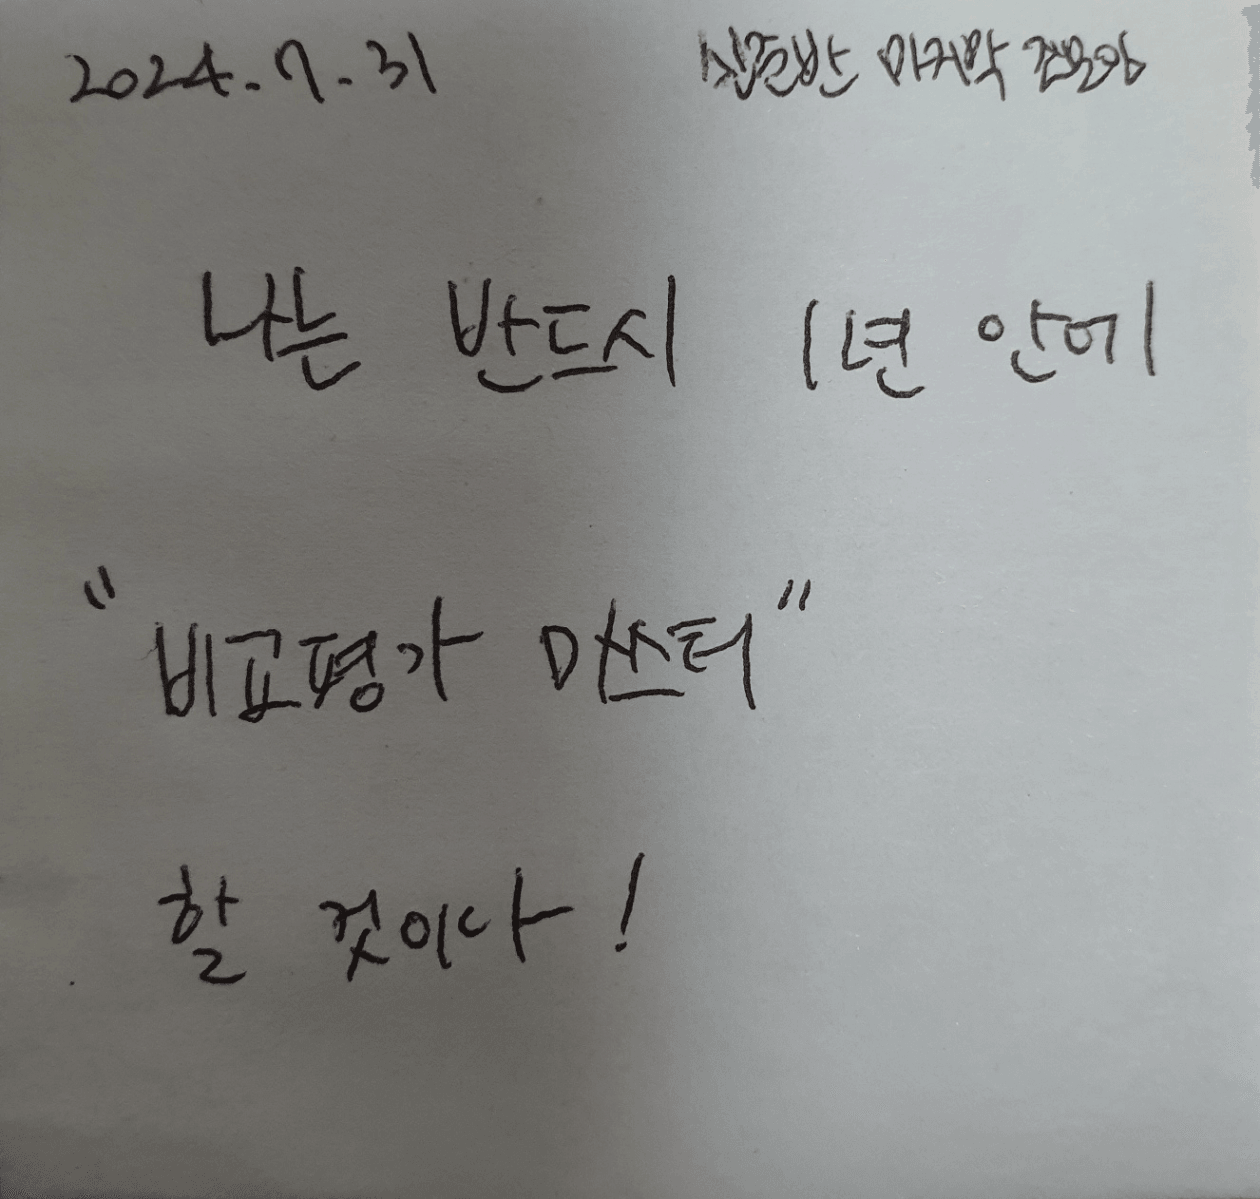 2024.7.31 심준반 마지막
나는 반드시 1년 안에
"비교평가 마스터"
할 것이다!